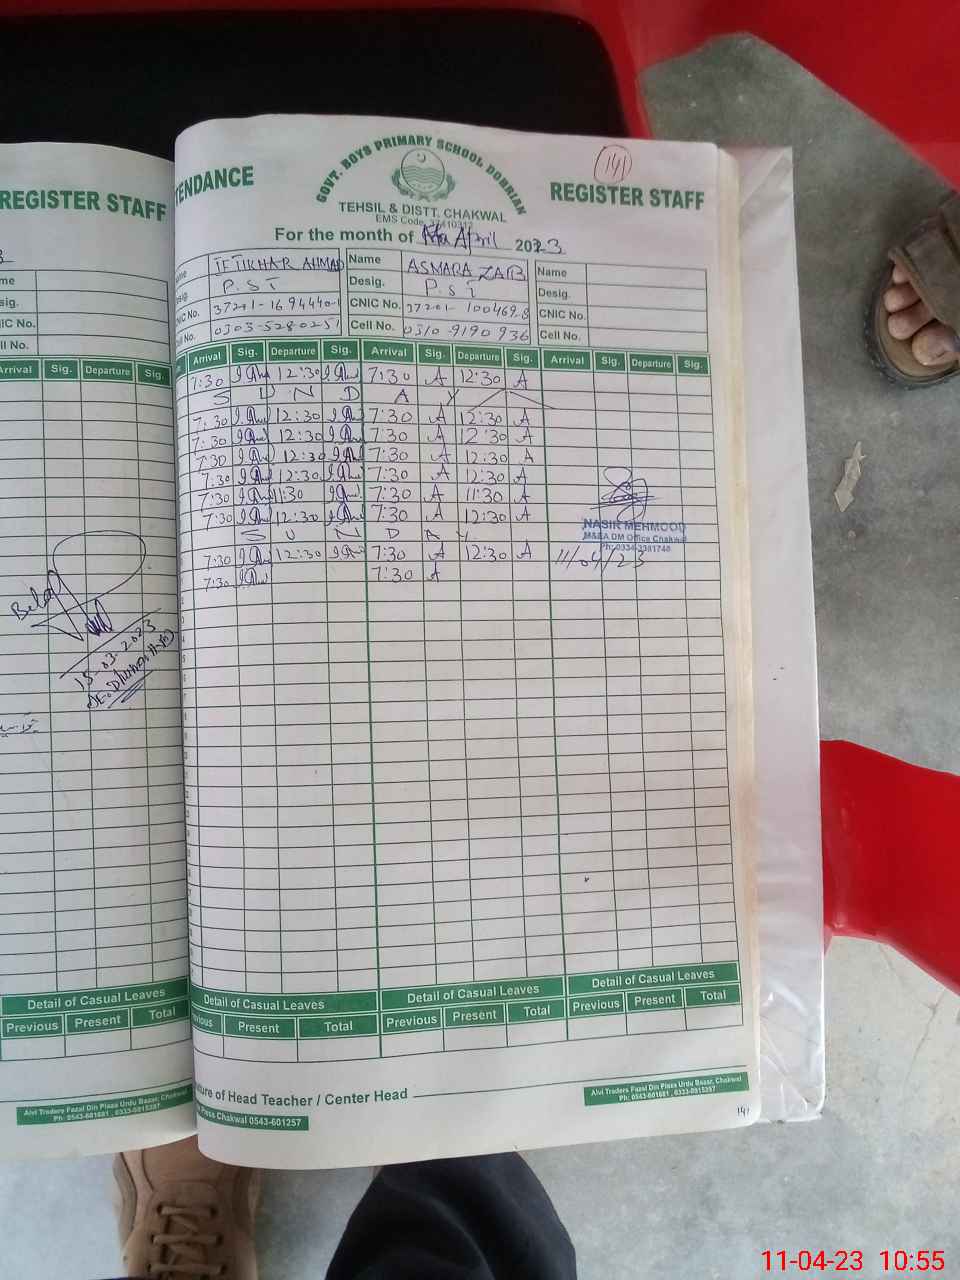 REGISTER STAFF
TENDANCE
GOVT. BOYS PRIMARY SCHOOL DOHRIAN
141
REGISTER STAFF
TEHSIL & DISTT. CHAKWAL
EMS Code.
For the month of April 2023
Name IFTIKHAR AHMAD Name ASMARA ZAIB Name
Desig. P.ST Desig. P.ST Desig.
CNIC No. CNIC No. 37201- 100469.8 CNIC No.
Cell No. 0303-5280251 Cell No. 0310-9190936 Cell No.
Arrival Sig. Departure Sig. Arrival Sig. Departure Sig. Arrival Sig. Departure Sig. Arrival Sig. Departure Sig.
7:30 12:30 7:30 A 12:30 A
S U N D A Y
7:30 12:30 7:30 A 12:30 A
7:30 12:30 7:30 A 12:30 A
7:30 12:30 7:30 A 12:30 A
7:30 12:30 7:30 A 12:30 A
7:30 11:30 7:30 A 11:30 A
7:30 12:30 7:30 A 12:30 A
NASIR MEHMOOD
M&EA DM Office Chakwal
S U N D A Y
7:30 12:30 7:30 A 12:30 A 11/04/23
7:30 7:30 A
15-03-2023
Detail of Casual Leaves Detail of Casual Leaves Detail of Casual Leaves Detail of Casual Leaves
Previous Present Total Previous Present Total Previous Present Total Previous Present Total
ature of Head Teacher / Center Head
Alvi Traders Fazal Din Plaza Urdu Bazar, Chakwal
Ph: 0543-601681 , 0333-5915357
Alvi Traders Fazal Din Plaza Urdu Bazar, Chakwal
Ph: 0543-601681 , 0333-5915357
Press Chakwal 0543-601257
141
11-04-23 10:55